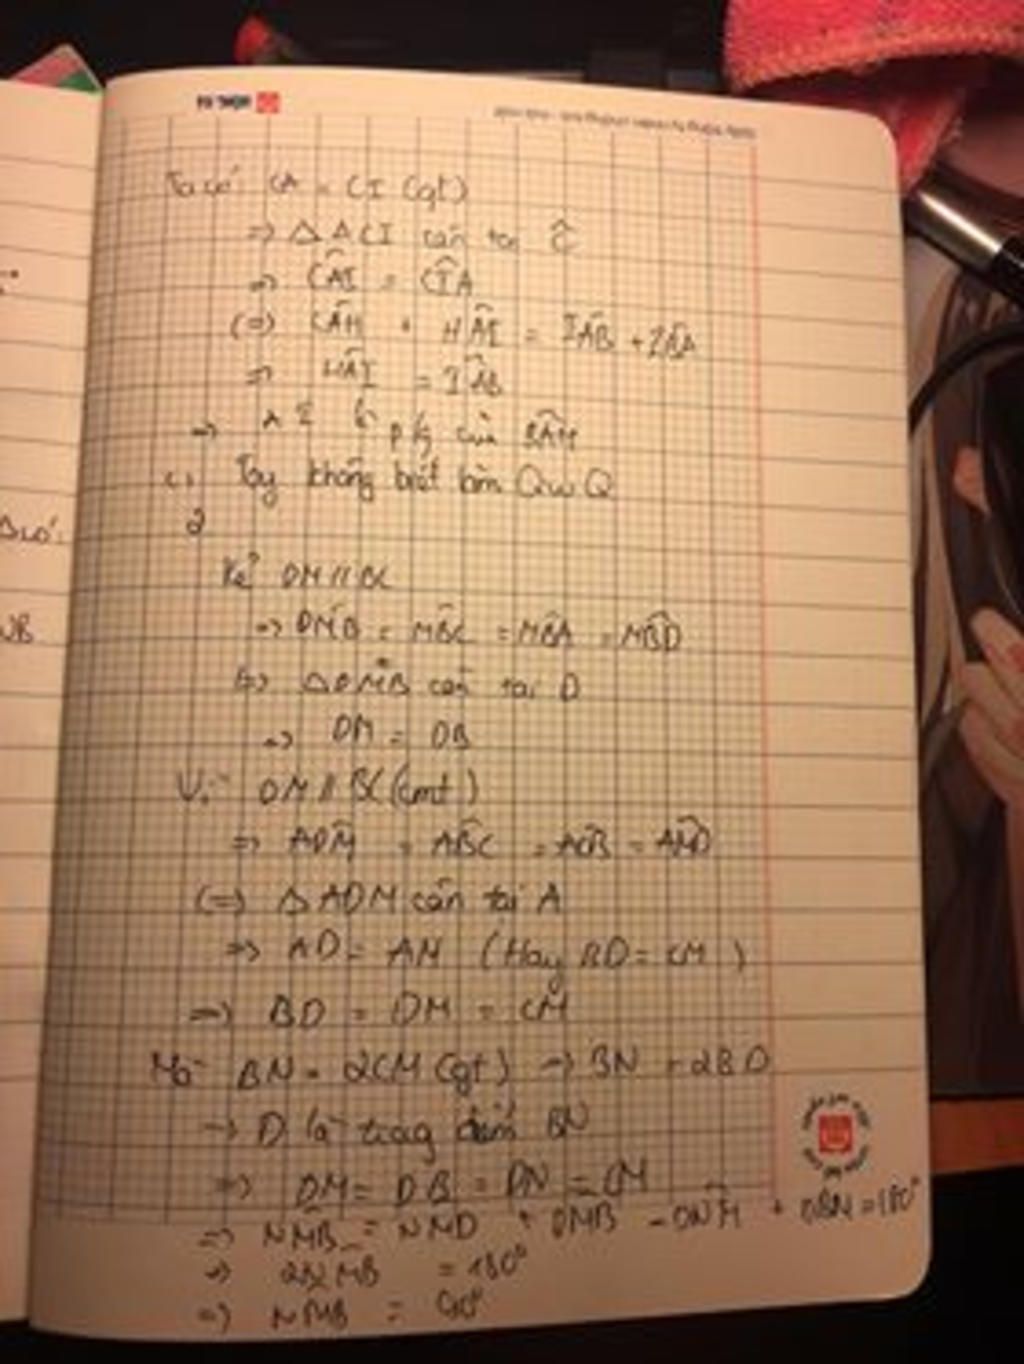 Ta có CA = CI (gt)
=> ΔACI cân tại Ĉ
=> CÂI = CÎA
(=) CÂH + HÂI = IÂB +
=> HÂI = IÂB
=> AI là p/g của BÂH
c, Tay không biết làm QwQ
2
Kẻ DM // BC
=> DM̂B = MB̂C = MB̂A = MB̂D
(=) ΔDMB cân tại D
=> DM = DB
Vì DM // BC (cmt)
=> AD̂M = AB̂C = AĈB = AM̂D
(=) ΔADM cân tại A
=> AD = AM (Hay BD = CM)
=> BD = DM = CM
Mà BN = 2CM (gt) => BN = 2BD
=> D là trung điểm BN
=> DM = DB = DN = CM
=> NMB = NMD + DMB = DNM + DBN = 180°
=> = 180°
=> NMB = 90°